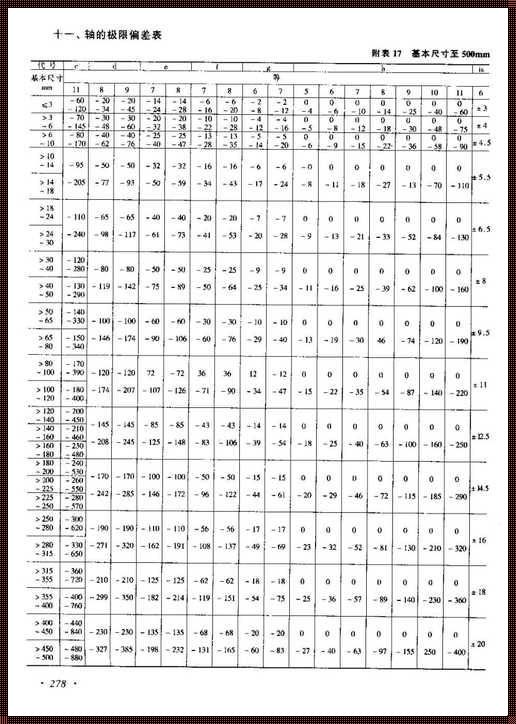 十一、轴的极限偏差表
附表 17 基本尺寸至 500mm
代 号 c d e f g h js
基本尺寸 等
mm 11 8 9 7 8 6 8 6 7 5 6 7 8 9 10 11 6
≤3 -60 -20 -20 -14 -14 -6 -6 -2 -2 0 0 0 0 0 0 0 ±3
-120 -34 -45 -24 -28 -16 -20 -8 -12 -4 -6 -10 -14 -25 -40 -60
>3 -70 -30 -30 -20 -20 -10 -10 -4 -4 0 0 0 0 0 0 0 ±4
-6 -145 -48 -60 -32 -38 -22 -28 -12 -16 -5 -8 -12 -18 -30 -48 -75
>6 -80 -40 -40 -25 -25 -13 -13 -5 -5 0 0 0 0 0 0 0 ±4.5
-10 -170 -62 -76 -40 -47 -28 -35 -14 -20 -6 -9 -15 -22 -36 -58 -90
>10
-14 -95 -50 -50 -32 -32 -16 -16 -6 -6 -0 0 0 0 0 0 0
±5.5
>14 -205 -77 -93 -50 -59 -34 -43 -17 -24 -8 -11 -18 -27 -13 -70 -110
-18
>18
-24 -110 -65 -65 -40 -40 -20 -20 -7 -7 0 0 0 0 0 0 0
±6.5
>24 -240 -98 -117 -61 -73 -41 -53 -20 -28 -9 -13 -21 -33 -52 -84 -130
-30
>30 -120
-40 -280 -80 -80 -50 -50 -25 -25 -9 -9 0 0 0 0 0 0 0
±8
>40 -130 -119 -142 -75 -89 -50 -64 -25 -34 -11 -16 -25 -39 -62 -100 -160
-50 -290
>50 -140
-65 -330 -100 -100 -60 -60 -30 -30 -10 -10 0 0 0 0 0 0 0
±9.5
>65 -150 -146 -174 -90 -106 -60 -76 -29 -40 -13 -19 -30 46 -74 -120 -190
-80 -340
>80 -170
-100 -390 -120 -120 72 -72 36 36 12 -12 0 0 0 0 0 0 0
±11
>100 -180 -174 -207 -107 -126 -71 -90 -34 -47 -15 -22 -35 -54 -87 -140 -220
-120 -400
>120 -200
-140 -450
>140 -210 -145 -145 -85 -85 -43 -43 -14 -14 0 0 0 0 0 0 0
-160 -460 ±12.5
>160 -230 -208 -245 -125 -148 -83 -106 -39 -54 -18 -25 -40 -63 -100 -160 -250
-180 -480
>180 -240
-200 -530
>200 -260 -170 -170 -100 -100 -50 -50 -15 -15 0 0 0 0 0 0 0
-225 -550 ±14.5
>225 -280 -242 -285 -146 -172 -96 -122 -44 -61 -20 -29 -46 -72 -115 -185 -290
-250 -570
>250 -300
-280 -620 -190 -190 -110 -110 -56 -56 -17 -17 0 0 0 0 0 0 0
±16
>280 -330 -271 -320 -162 -191 -108 -137 -49 -69 -23 -32 -52 -81 -130 -210 -320
-315 -650
>315 -360
-355 -720 -210 -210 -125 -125 -62 -62 -18 -18 0 0 0 0 0 0 0
±18
>355 -400 -299 -350 -182 -214 -119 -151 -54 -75 -25 -36 -57 -89 -140 -230 -360
-400 -760
>400 -440
-450 -840 -230 -230 -135 -135 -68 -68 -20 -20 0 0 0 0 0 0 0
±20
>450 -480 -327 -385 -198 -232 -131 -165 -60 -83 -27 -40 -63 -97 -155 250 -400
-500 -880
· 278 ·